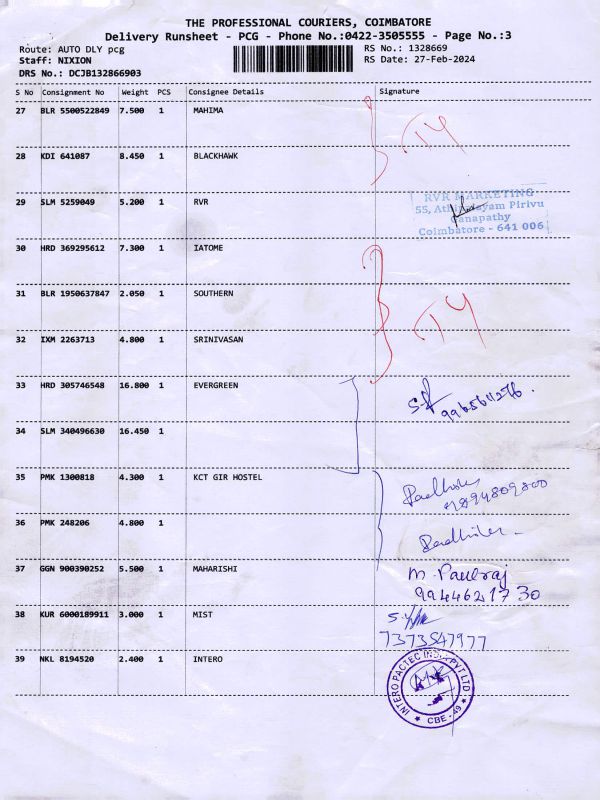 THE PROFESSIONAL COURIERS, COIMBATORE
Delivery Runsheet - PCG - Phone No.:0422-3505555 - Page No.:3
Route: AUTO DLY pcg
Staff: NIXION
DRS No.: DCJB132866903
RS No.: 1328669
RS Date: 27-Feb-2024
S No Consignment No Weight PCS Consignee Details Signature
27 BLR 5500522849 7.500 1 MAHIMA
28 KDI 641087 8.450 1 BLACKHAWK
29 SLM 5259049 5.200 1 RVR
RVR MARKETING
55, Athipalayam Pirivu
Ganapathy
Coimbatore - 641 006
30 HRD 369295612 7.300 1 IATOME
31 BLR 1950637847 2.050 1 SOUTHERN
32 IXM 2263713 4.800 1 SRINIVASAN
33 HRD 305746548 16.800 1 EVERGREEN
34 SLM 340496630 16.450 1
35 PMK 1300818 4.300 1 KCT GIR HOSTEL
36 PMK 248206 4.800 1
37 GGN 900390252 5.500 1 MAHARISHI
M. Paulraj
9944621730
38 KUR 6000189911 3.000 1 MIST
7373547977
39 NKL 8194520 2.400 1 INTERO
INTERO PACTEC INDIA PVT LTD
CBE - 49